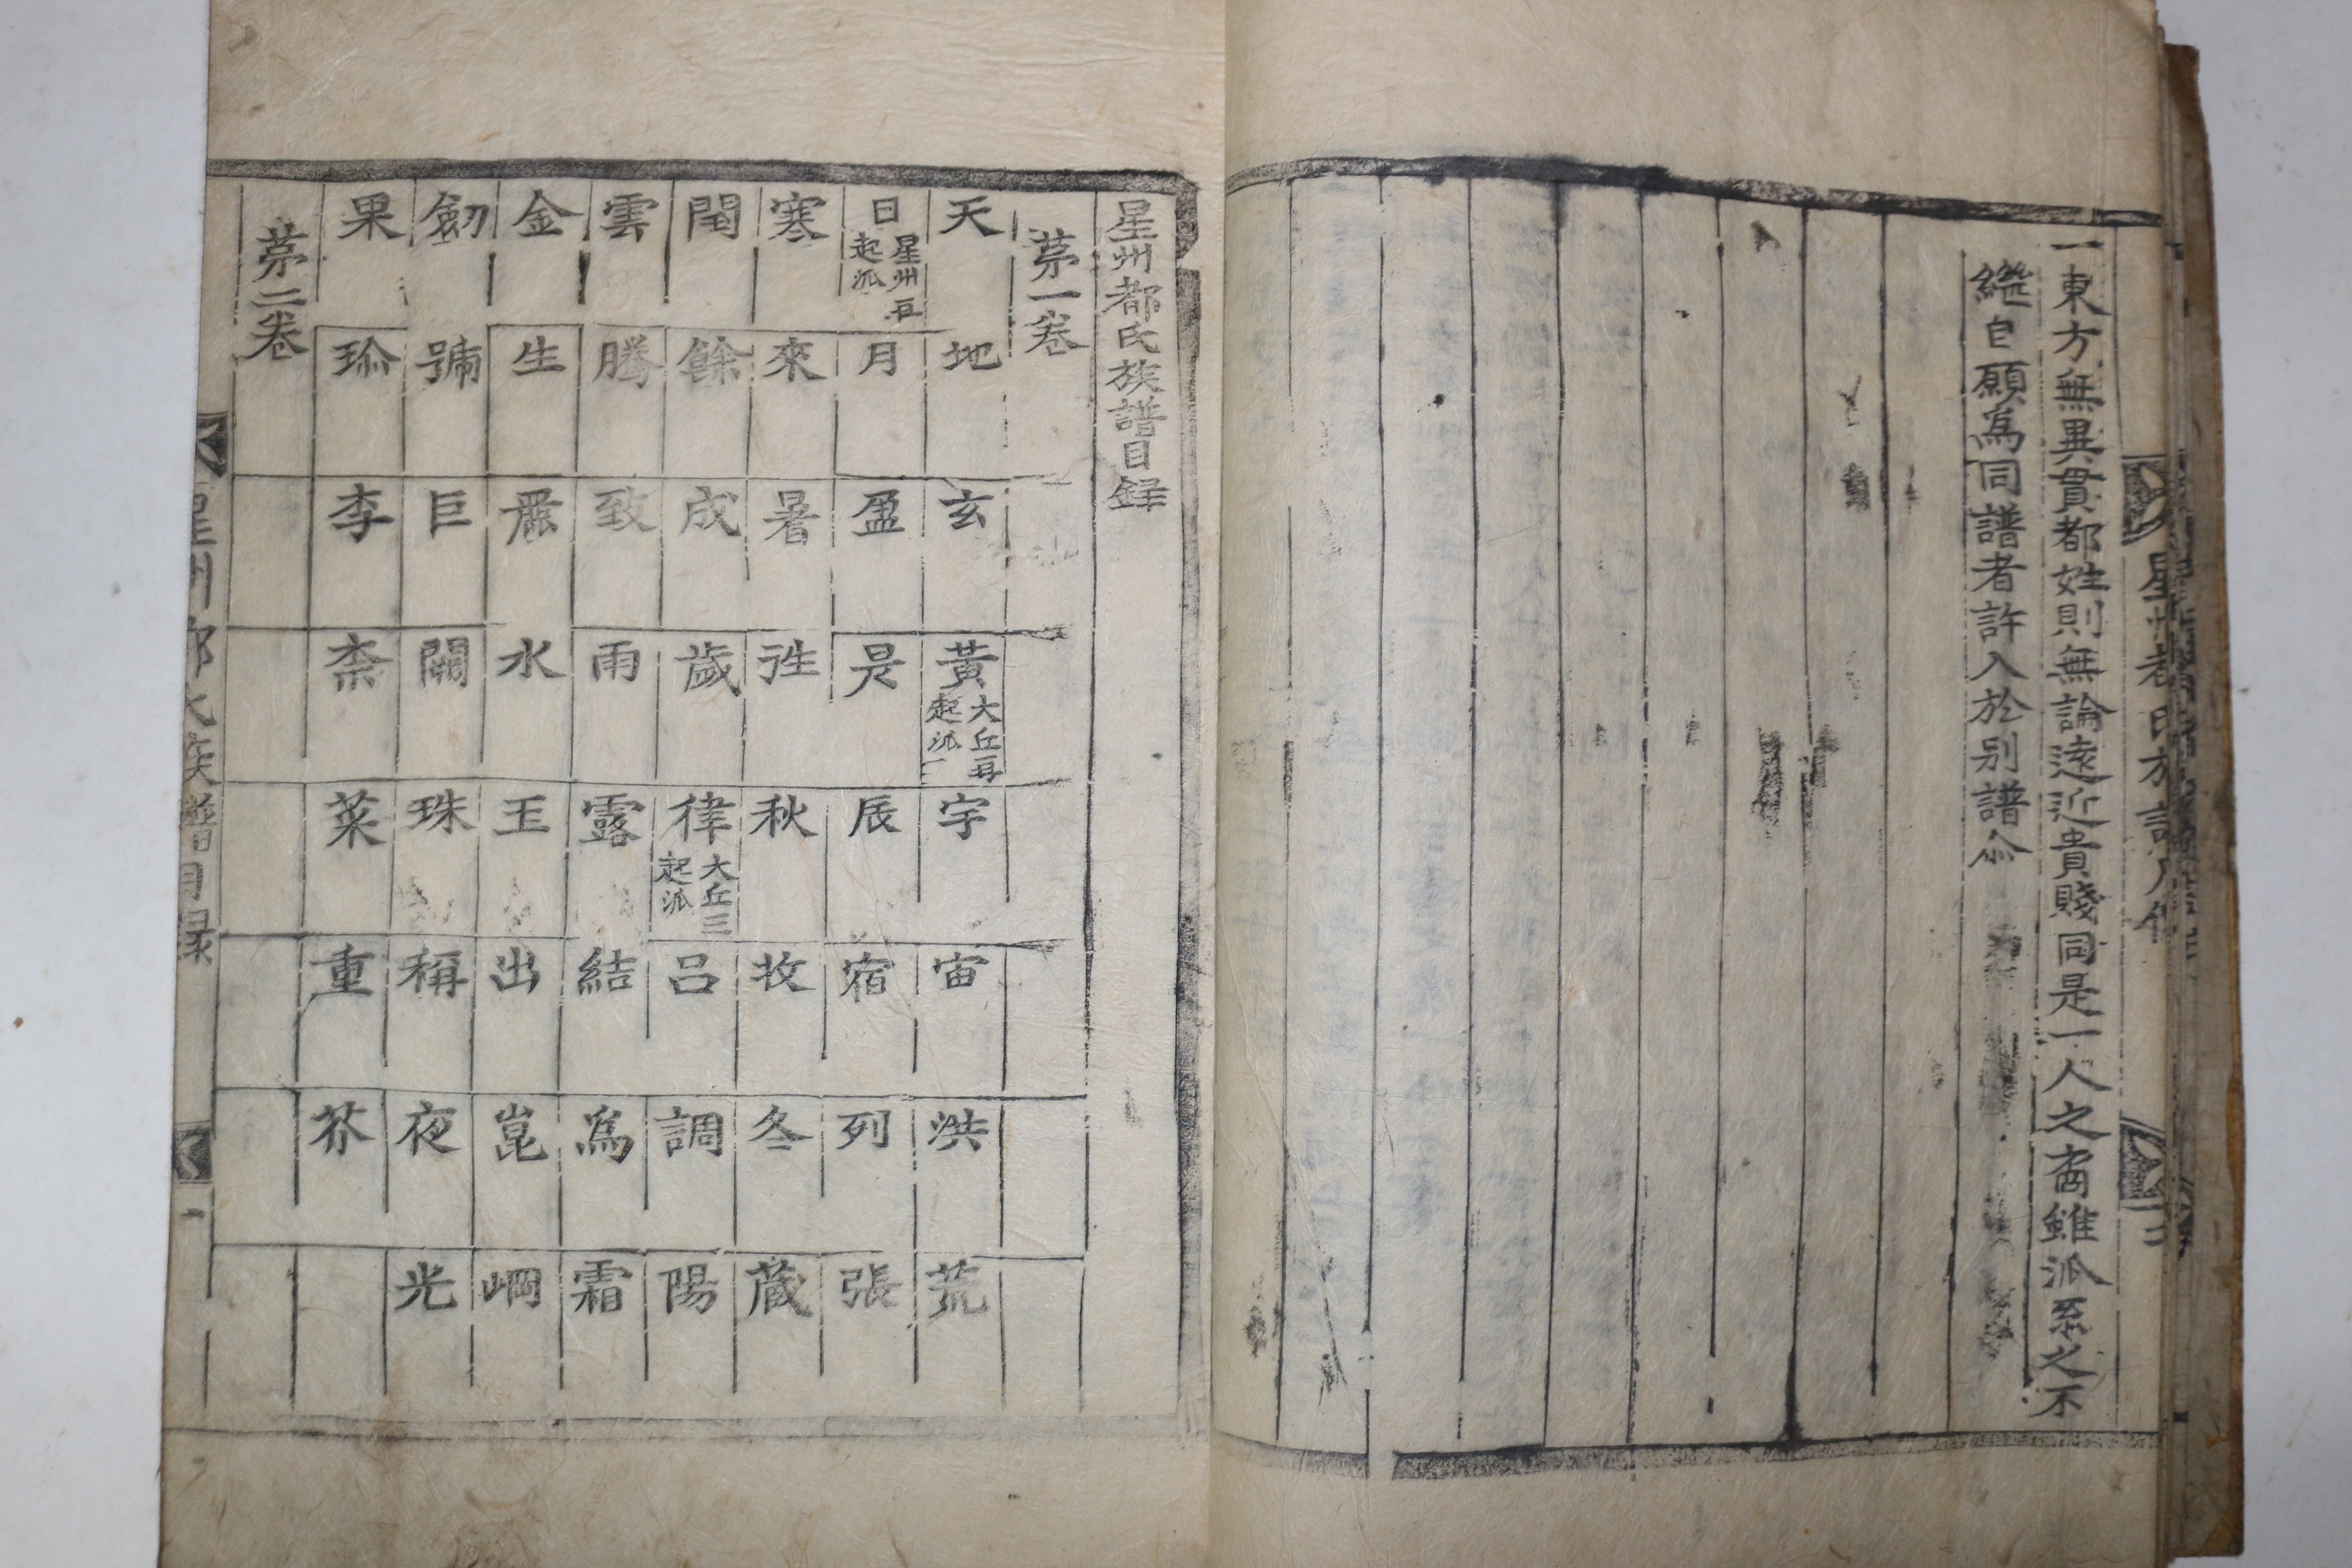 星州都氏族譜凡例 二
一東方無異貫都姓則無論遠近貴賤同是一人之裔雖派系之不
継自願爲同譜者許入於别譜尒
星州都氏族譜目録
苐一卷
天 地 玄 黃 大丘再起派 宇 宙 洪 荒
日 星州再起派 月 盈 昃 辰 宿 列 張
寒 來 暑 徃 秋 收 冬 蔵
閏 餘 成 歲 律 大丘三起派 呂 調 陽
雲 騰 致 雨 露 結 爲 霜
金 生 麗 水 玉 出 崑 崗
劒 號 巨 闕 珠 稱 夜 光
果 珎 李 柰 菜 重 芥
苐二卷
星州都氏族譜目録 一